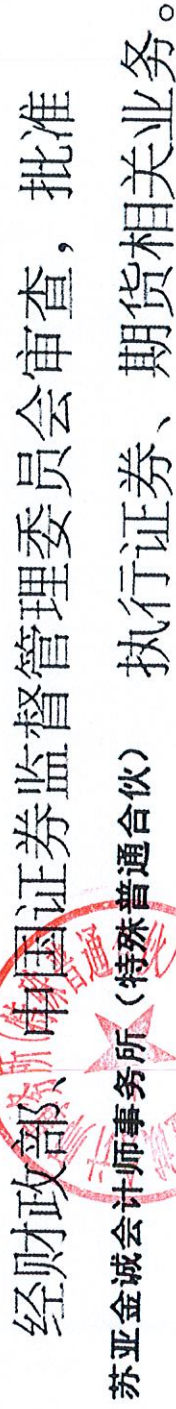 经财政部、中国证券监督管理委员会审查，批准
苏亚金诚会计师事务所（特殊普通合伙） 执行证券、期货相关业务。